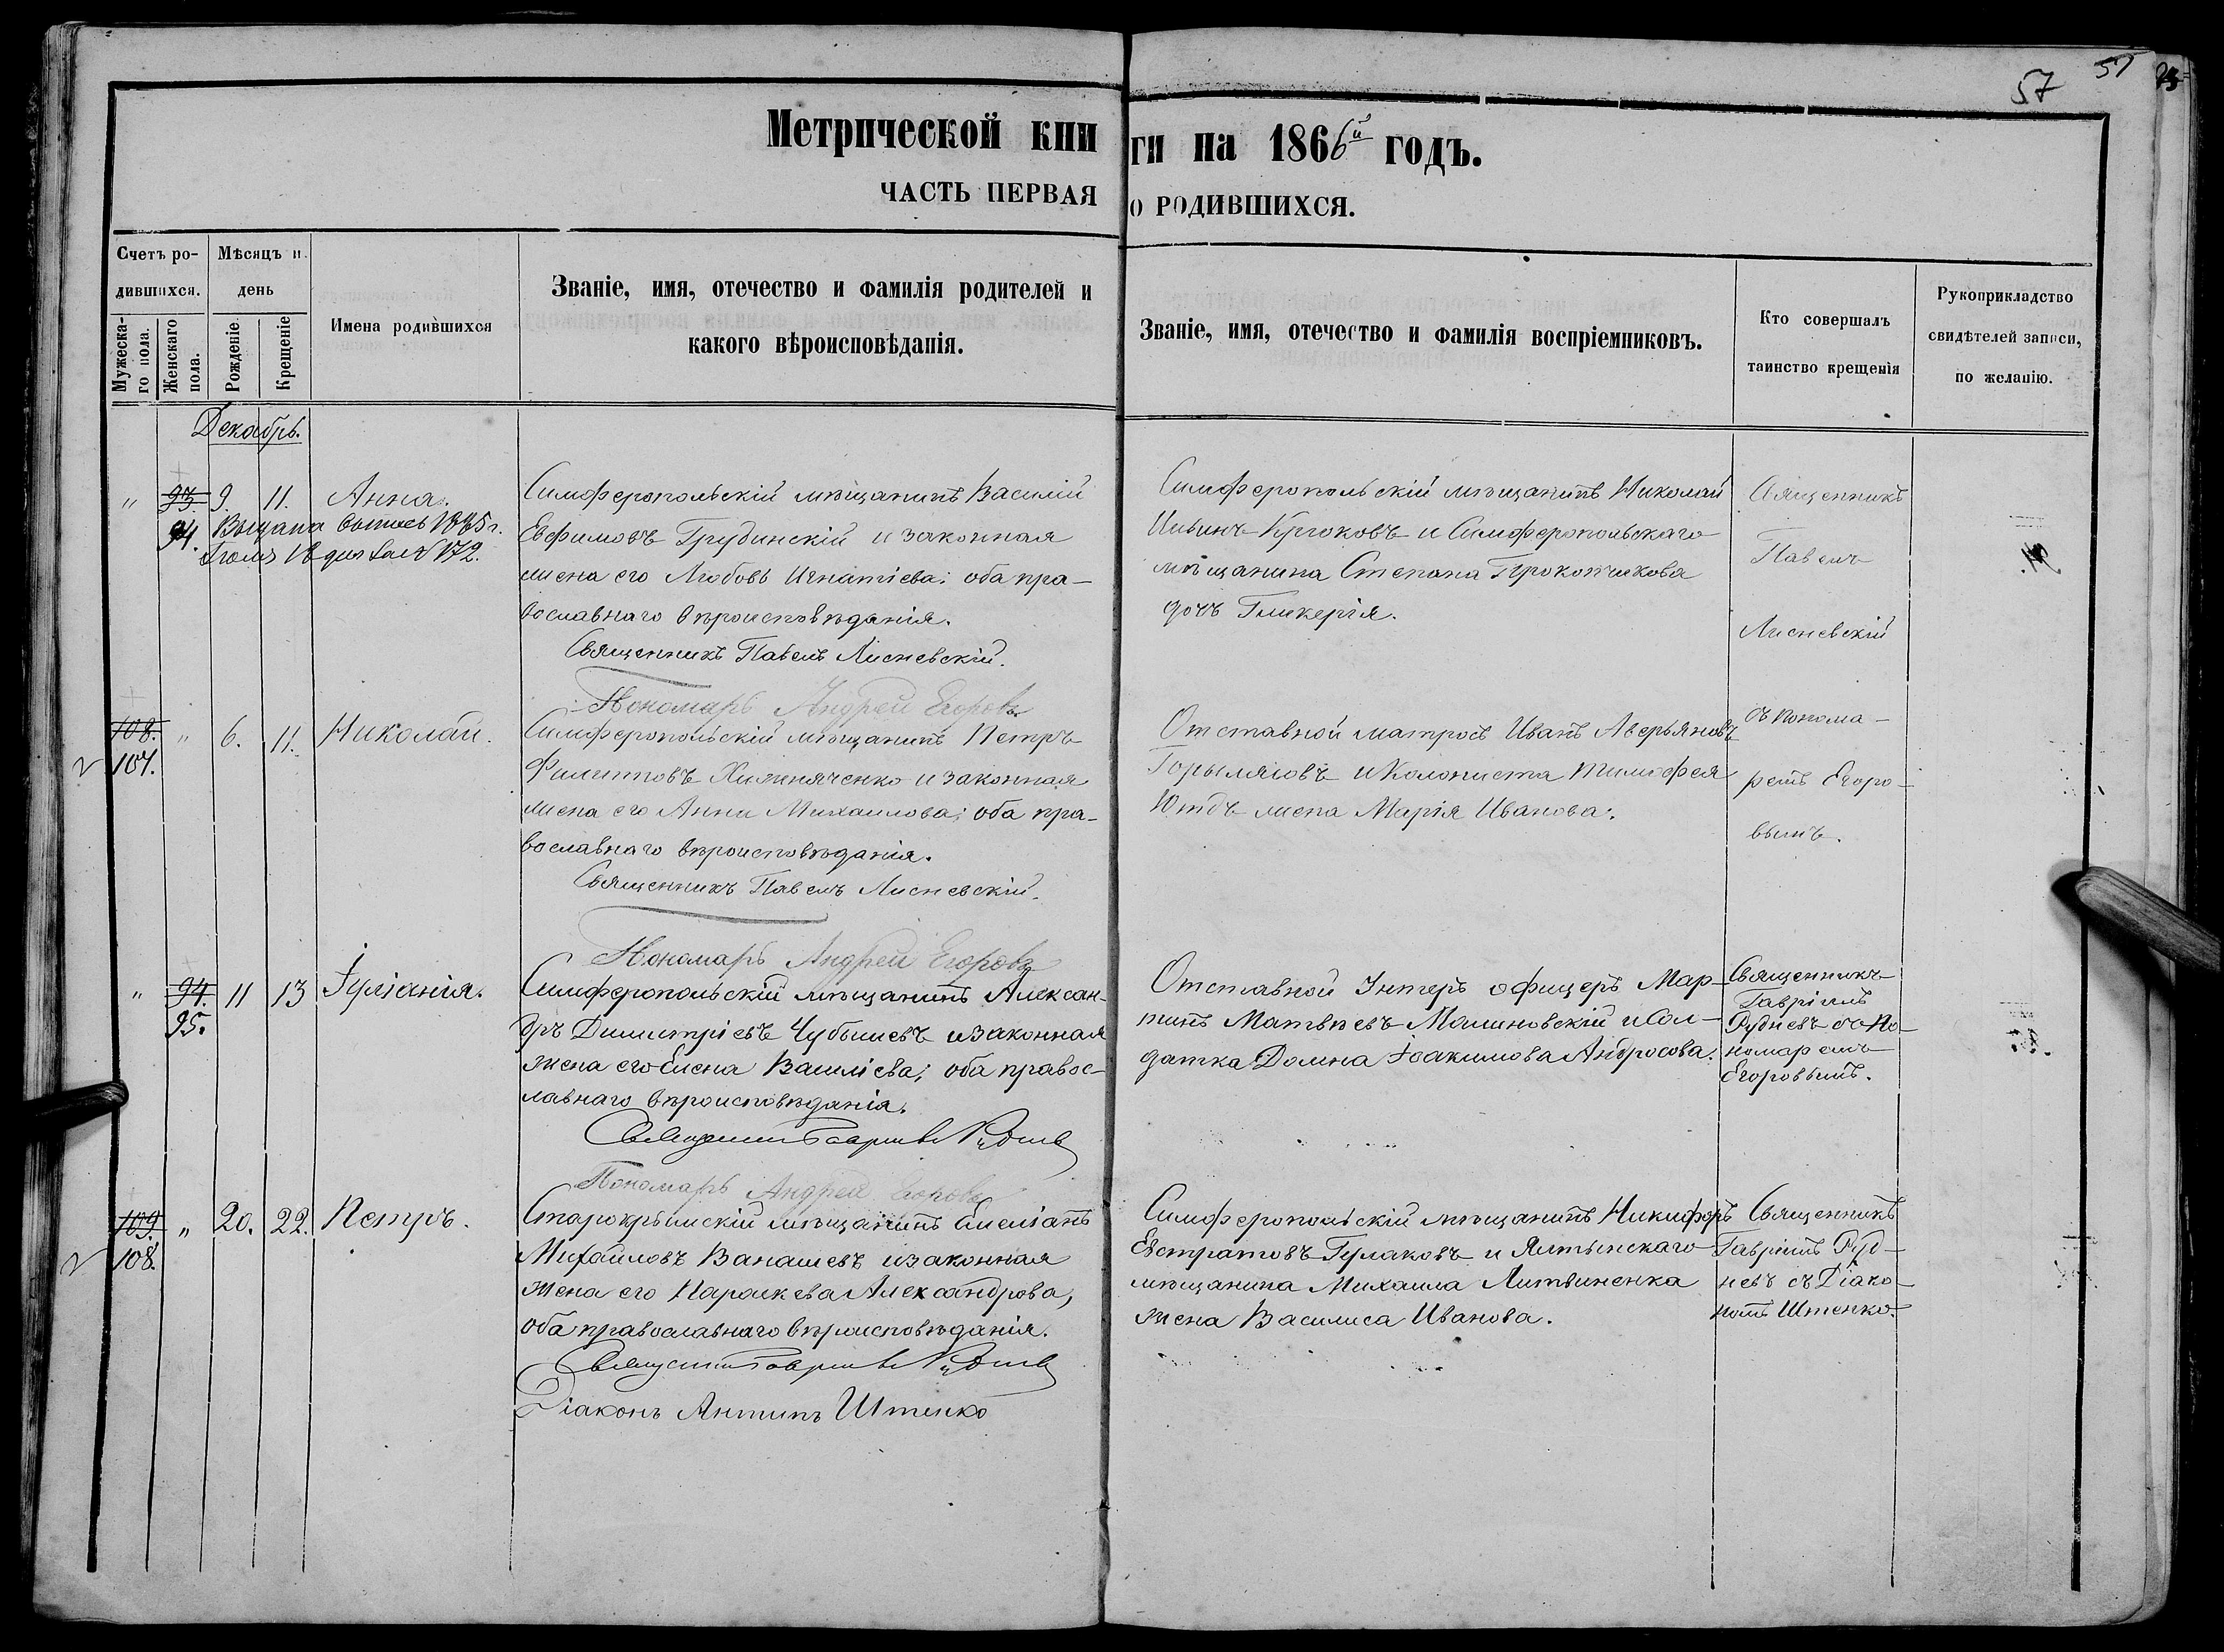 57
57
Метрической книги на 1866й годъ.
ЧАСТЬ ПЕРВАЯ О РОДИВШИХСЯ.
Счетъ родившихся.
Мужескаго пола.
Женскаго пола.
Мѣсяцъ и день
Рожденіе
Крещеніе
Имена родившихся
Званіе, имя, отечество и фамилія родителей и
какого вѣроисповѣданія.
Званіе, имя, отечество и фамилія воспріемниковъ.
Кто совершалъ
таинство крещенія
Рукоприкладство
свидѣтелей записи,
по желанію.
Декабрь.
" 93. 9. 11. Анна.
94.
№ 172.
Симферопольскій мѣщанинъ Василій
Евфимовъ Грудинскій и законная
жена его Любовь Игнатіева; оба пра-
вославнаго вѣроисповѣданія.
Священникъ Павелъ Лисневскій.
Пономарь Андрей Егоровъ
Симферопольскій мѣщанинъ Николай
и Симферопольскаго
мѣщанина Степана Прокопчикова
дочь Гликерія.
Священникъ
Павелъ
Лисневскій
съ понома-
ремъ Егоро-
вымъ.
108. " 6. 11. Николай.
107.
Симферопольскій мѣщанинъ Петръ
Филипповъ и законная
жена его Анна Михаилова; оба пра-
вославнаго вѣроисповѣданія.
Священникъ Павелъ Лисневскій.
Пономарь Андрей Егоровъ
Отставной матросъ Иванъ Аверьяновъ
и Колониста Тимофея
жена Марія Иванова.
" 94. 11 13 Іуліанія.
95.
Симферопольскій мѣщанинъ Алексан-
дръ Димитріевъ Чубышевъ и законная
жена его Елена Василіева; оба правос-
лавнаго вѣроисповѣданія.
Священникъ Гавріилъ Рудневъ
Пономарь Андрей Егоровъ
Отставной Унтеръ офицеръ Мар-
тинъ Матвѣевъ Малиновскій и Сол-
датка Домна Іоакимова Андросова.
Священникъ
Гавріилъ
Рудневъ съ По-
номаремъ
Егоровымъ.
109. " 20. 22. Петръ.
108.
Старокрымскій мѣщанинъ Емеліанъ
Михайловъ Ванашевъ и законная
жена его Параскева Александрова,
оба православнаго вѣроисповѣданія.
Священникъ Гавріилъ Рудневъ
Діаконъ Антипъ Штенко
Симферопольскій мѣщанинъ Никифоръ
Евстратовъ Гулаковъ и Ялтынскаго
мѣщанина Михаила Литвиненка
жена Василиса Иванова.
Священникъ
Гавріилъ Руд-
невъ съ Діако-
номъ Штенко.